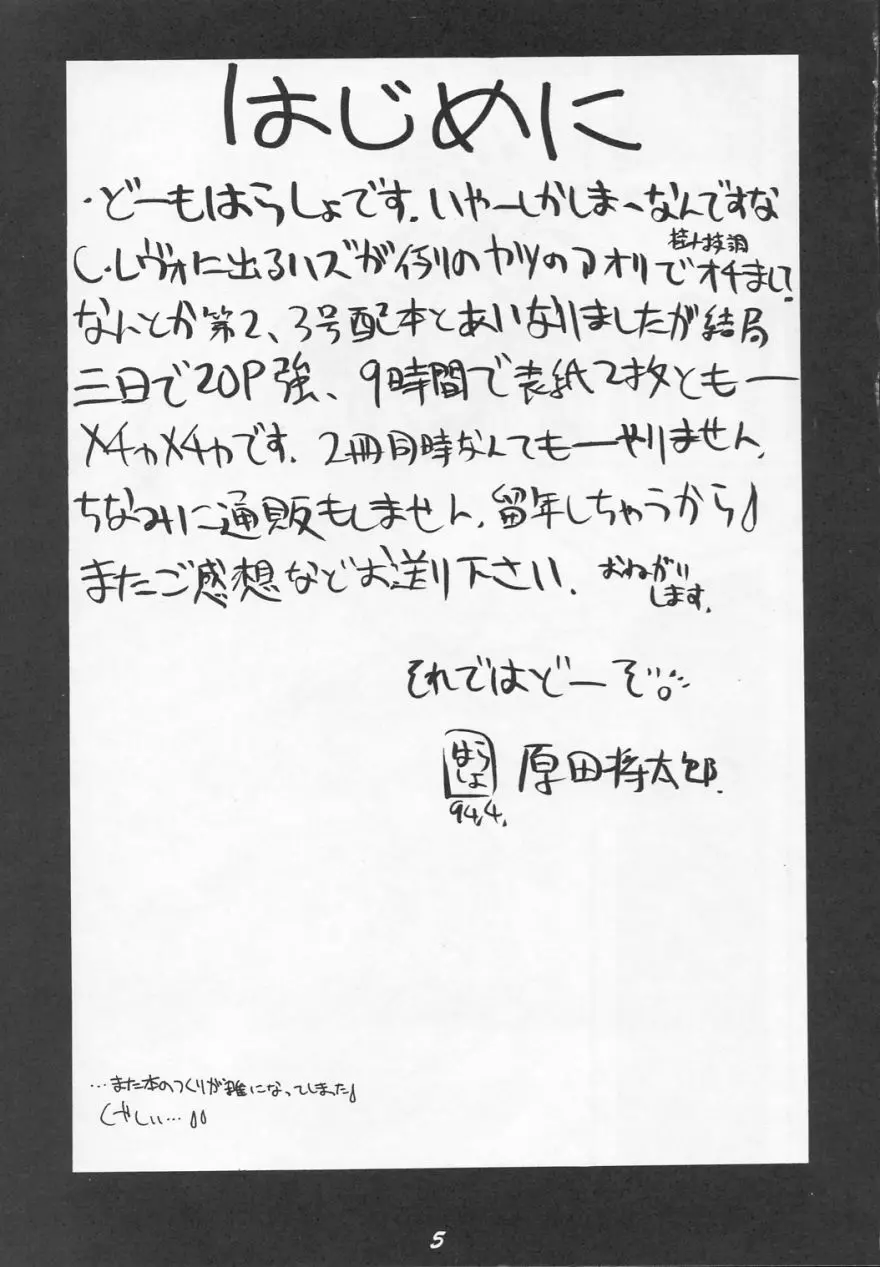 はじめに
・どーもはらしょです.いやーしかしまーなんですな
C・レヴォに出るハズが例のヤツのアオリでオチまして
なんとか第2、3号配本とあいなりましたが結局
三日で20P強、9時間で表紙2枚ともー
メチャメチャです.2冊同時なんてもーやりません.
ちなみに通販もしません.留年しちゃうから♪
またご感想などお送り下さい.おねがい
します.
それではどーぞ。
はらしょ 原田将太郎.
94,4.
…また本のつくりが雑になってしまった♪
くやしい…♪♪
5